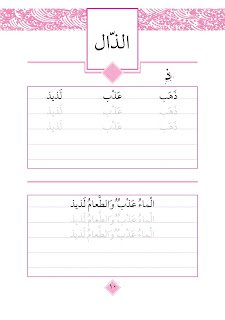 الذّال
ذ
ذَهَب عَذْب لَذيذ
ذَهَب عَذْب لَذيذ
ذَهَب عَذْب لَذيذ
الْماءُ عَذْبٌ وَالطَّعامُ لَذيذ
الْماءُ عَذْبٌ وَالطَّعامُ لَذيذ
الْماءُ عَذْبٌ وَالطَّعامُ لَذيذ
١٠